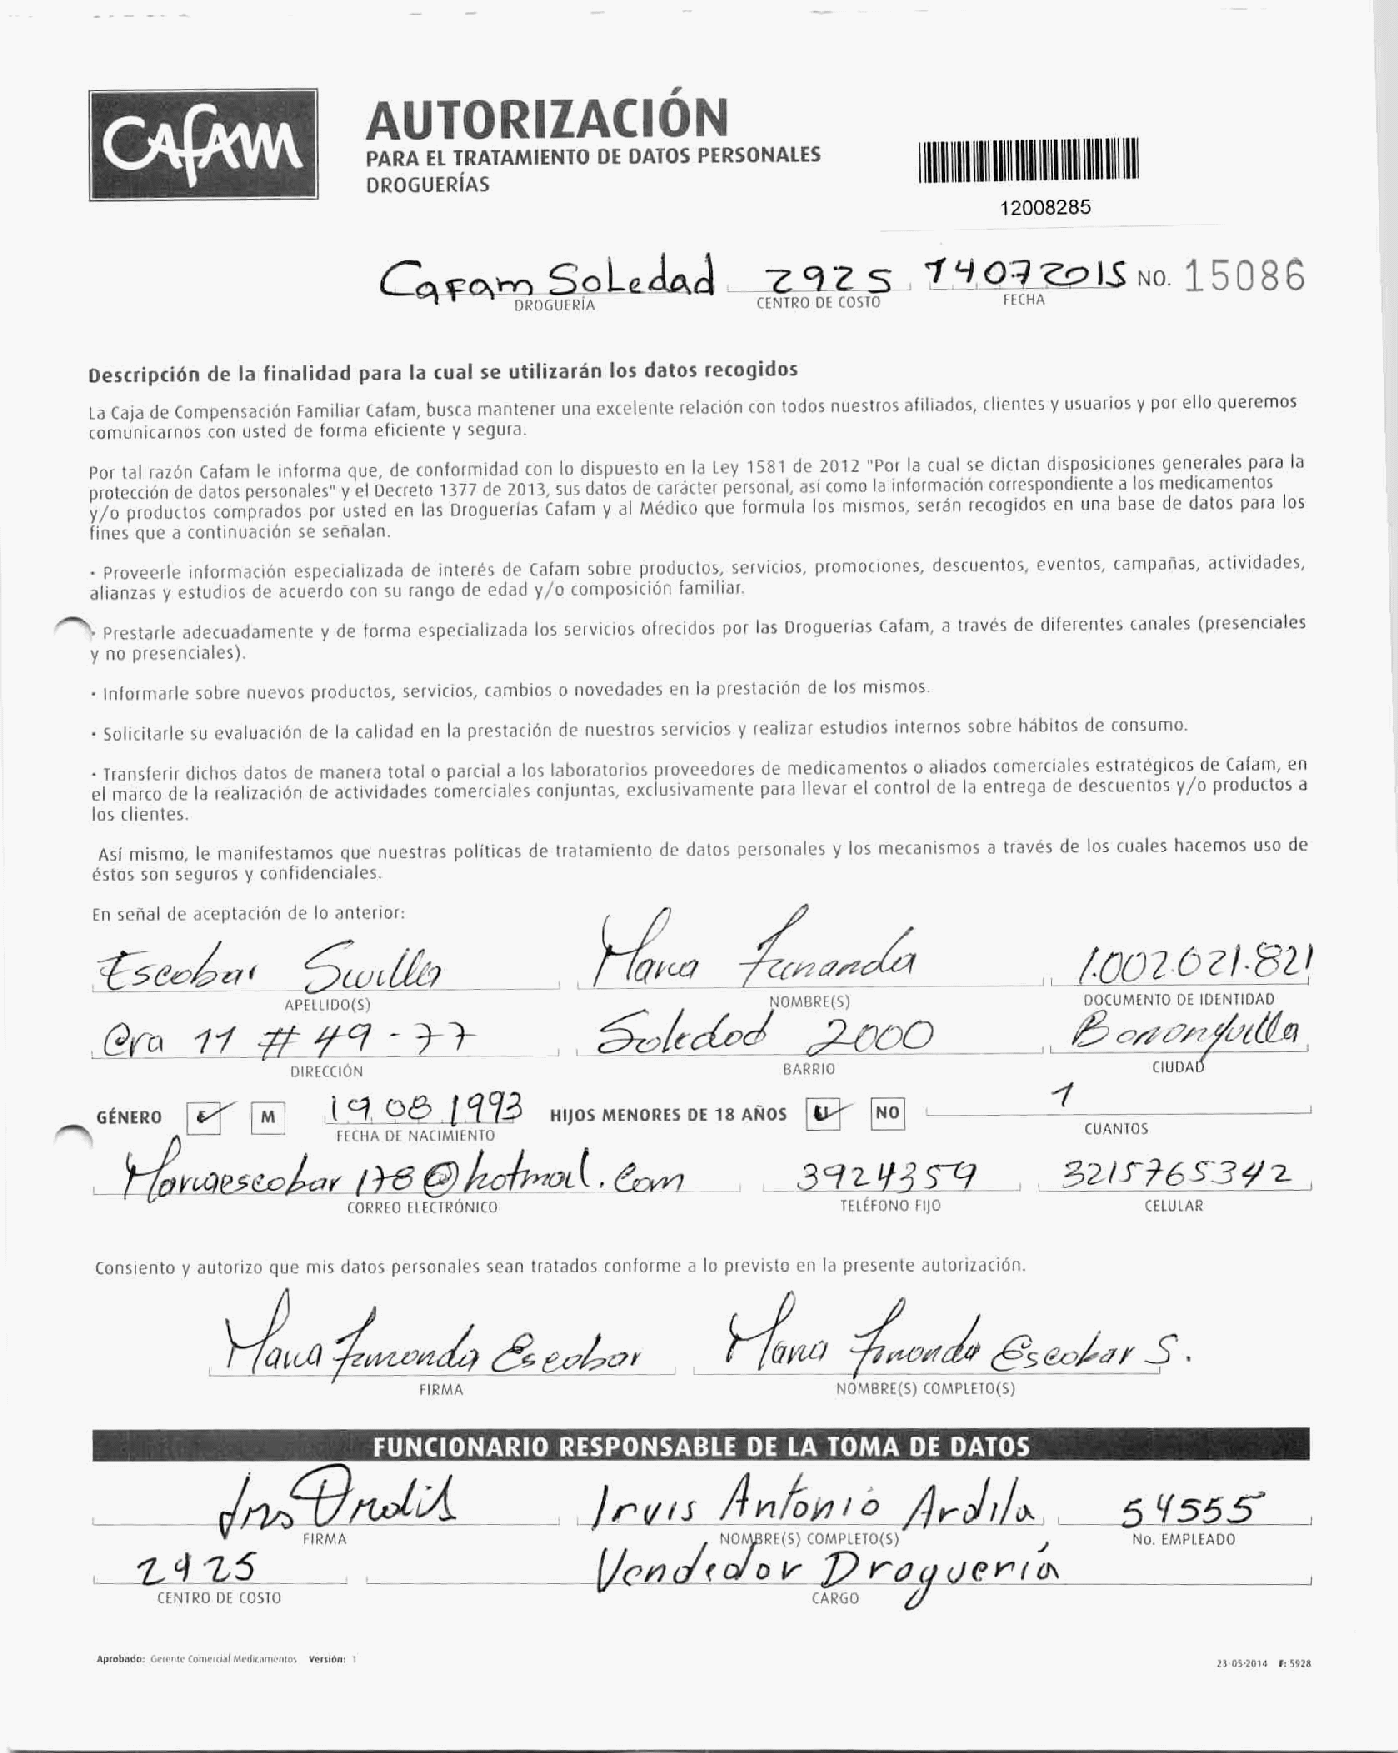 CAFAM
AUTORIZACIÓN
PARA EL TRATAMIENTO DE DATOS PERSONALES
DROGUERÍAS
12008285
Cafam Soledad 2925 14072015 NO. 15086
DROGUERÍA CENTRO DE COSTO FECHA
Descripción de la finalidad para la cual se utilizarán los datos recogidos
La Caja de Compensación Familiar Cafam, busca mantener una excelente relación con todos nuestros afiliados, clientes y usuarios y por ello queremos
comunicarnos con usted de forma eficiente y segura.
Por tal razón Cafam le informa que, de conformidad con lo dispuesto en la Ley 1581 de 2012 "Por la cual se dictan disposiciones generales para la
protección de datos personales" y el Decreto 1377 de 2013, sus datos de carácter personal, así como la información correspondiente a los medicamentos
y/o productos comprados por usted en las Droguerías Cafam y al Médico que formula los mismos, serán recogidos en una base de datos para los
fines que a continuación se señalan.
· Proveerle información especializada de interés de Cafam sobre productos, servicios, promociones, descuentos, eventos, campañas, actividades,
alianzas y estudios de acuerdo con su rango de edad y/o composición familiar.
· Prestarle adecuadamente y de forma especializada los servicios ofrecidos por las Droguerías Cafam, a través de diferentes canales (presenciales
y no presenciales).
· Informarle sobre nuevos productos, servicios, cambios o novedades en la prestación de los mismos.
· Solicitarle su evaluación de la calidad en la prestación de nuestros servicios y realizar estudios internos sobre hábitos de consumo.
· Transferir dichos datos de manera total o parcial a los laboratorios proveedores de medicamentos o aliados comerciales estratégicos de Cafam, en
el marco de la realización de actividades comerciales conjuntas, exclusivamente para llevar el control de la entrega de descuentos y/o productos a
los clientes.
Así mismo, le manifestamos que nuestras políticas de tratamiento de datos personales y los mecanismos a través de los cuales hacemos uso de
éstos son seguros y confidenciales.
En señal de aceptación de lo anterior:
Escobar Maria Fernanda 1.002.021.821
APELLIDO(S) NOMBRE(S) DOCUMENTO DE IDENTIDAD
Cra 11 # 49-77 Soledad 2000 Barranquilla
DIRECCIÓN BARRIO CIUDAD
GÉNERO M 19 08 1993 HIJOS MENORES DE 18 AÑOS NO 1
FECHA DE NACIMIENTO CUANTOS
Mariaescobar178@hotmail.com 3924359 3215765342
CORREO ELECTRÓNICO TELÉFONO FIJO CELULAR
Consiento y autorizo que mis datos personales sean tratados conforme a lo previsto en la presente autorización.
Maria Fernanda Escobar Maria Fernanda Escobar S.
FIRMA NOMBRE(S) COMPLETO(S)
FUNCIONARIO RESPONSABLE DE LA TOMA DE DATOS
Irvis Antonio Ardila 54555
FIRMA NOMBRE(S) COMPLETO(S) No. EMPLEADO
2925 Vendedor Droguería
CENTRO DE COSTO CARGO
Aprobado: Gerente Comercial Medicamentos Versión: 1
23-05-2014 F: 5928